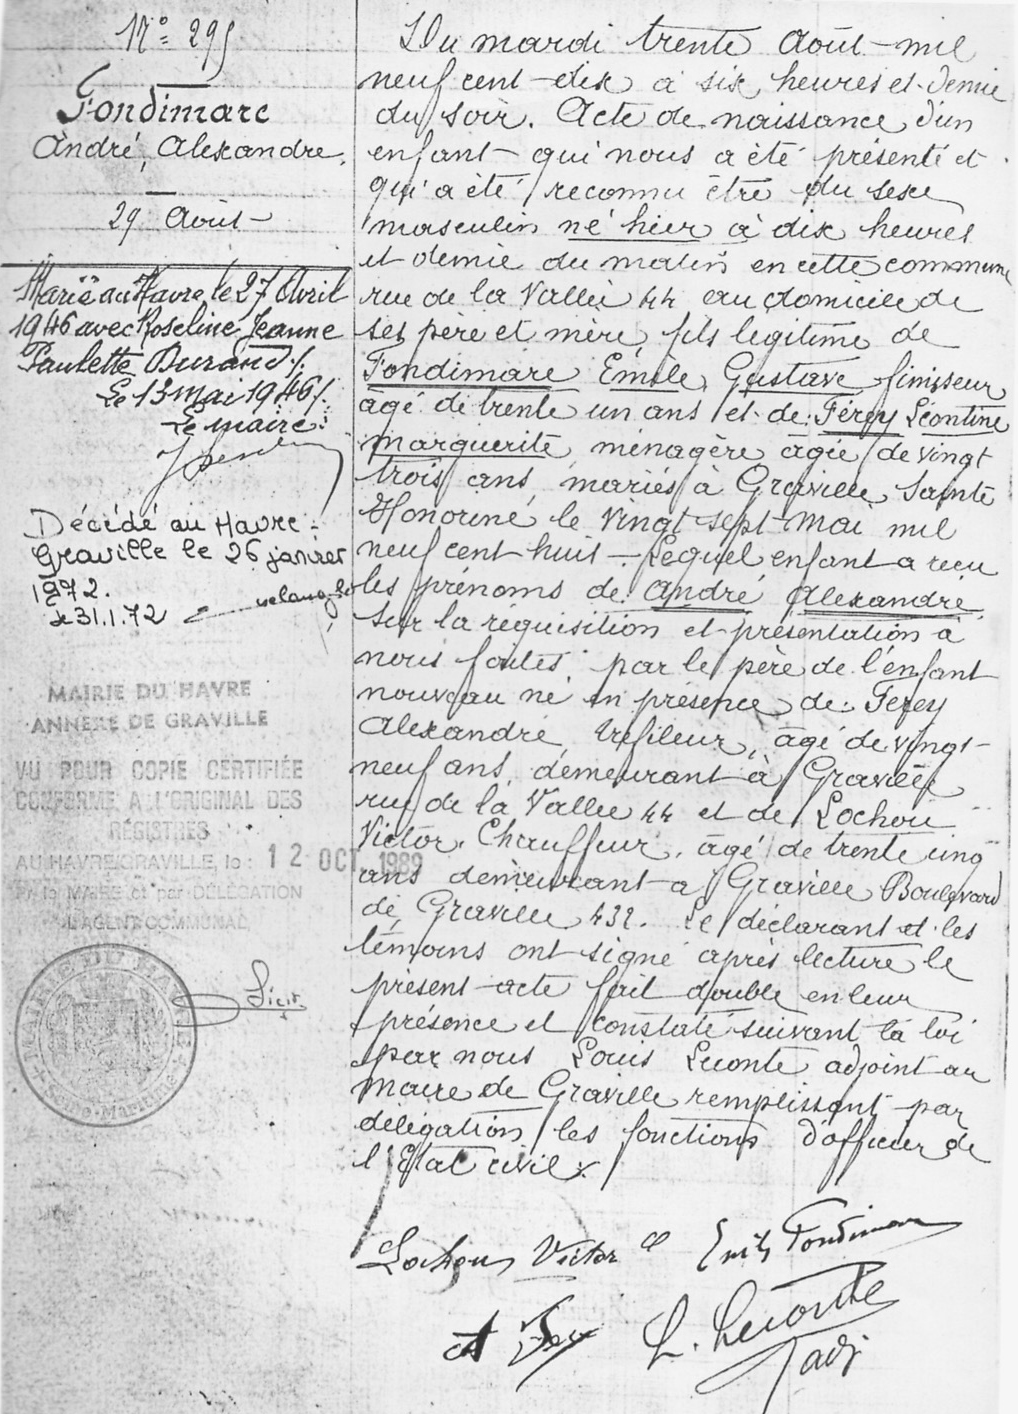 N° 295
Fondimare
André, Alexandre.
29 Août
Marié au Havre, le 27 Avril
1946 avec Roseline Jeanne
Paulette Durand /.
Le 13 mai 1946 /.
Le maire:
Décédé au Havre-
Graville le 26 janvier
1972.
le 31.1.72
MAIRIE DU HAVRE
ANNEXE DE GRAVILLE
VU POUR COPIE CERTIFIÉE
CONFORME A L'ORIGINAL DES
REGISTRES
AU HAVRE/GRAVILLE, le : 12 OCT. 1989
Pr le MAIRE et par DÉLÉGATION
L'AGENT COMMUNAL,
MAIRIE DU HAVRE
Seine-Maritime
Du mardi trente Août mil
neuf cent dix à six heures et demie
du soir. Acte de naissance d'un
enfant qui nous a été présenté et
qui a été reconnu être du sexe
masculin né hier à dix heures
et demie du matin en cette commune
rue de la Vallée 44 au domicile de
ses père et mère, fils légitime de
Fondimare Emile, Gustave finisseur
âgé de trente un ans et de Férey Léontine
Marguerite, ménagère âgée de vingt
trois ans, mariés à Graville Sainte
Honorine le vingt sept Mai mil
neuf cent huit - Lequel enfant a reçu
les prénoms de André Alexandre
Sur la réquisition et présentation à
nous faites par le père de l'enfant
nouveau né en présence de: Ferey
Alexandre, tréfileur, âgé de vingt-
neuf ans, demeurant à Graville
rue de la Vallée 44 et de Lochou
Victor, Chauffeur, âgé de trente cinq
ans demeurant à Graville Boulevard
de Graville 432. Le déclarant et les
témoins ont signé après lecture le
présent acte fait double en leur
présence et constaté suivant la loi
par nous Louis Leconte adjoint au
Maire de Graville remplissant par
délégation les fonctions d'officier de
l'Etat civil.
Lochou Victor Emile Fondimare
A Ferey L. Leconte
adj